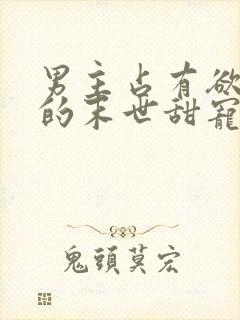 男主占有欲
的末世甜寵
鬼頭莫宏